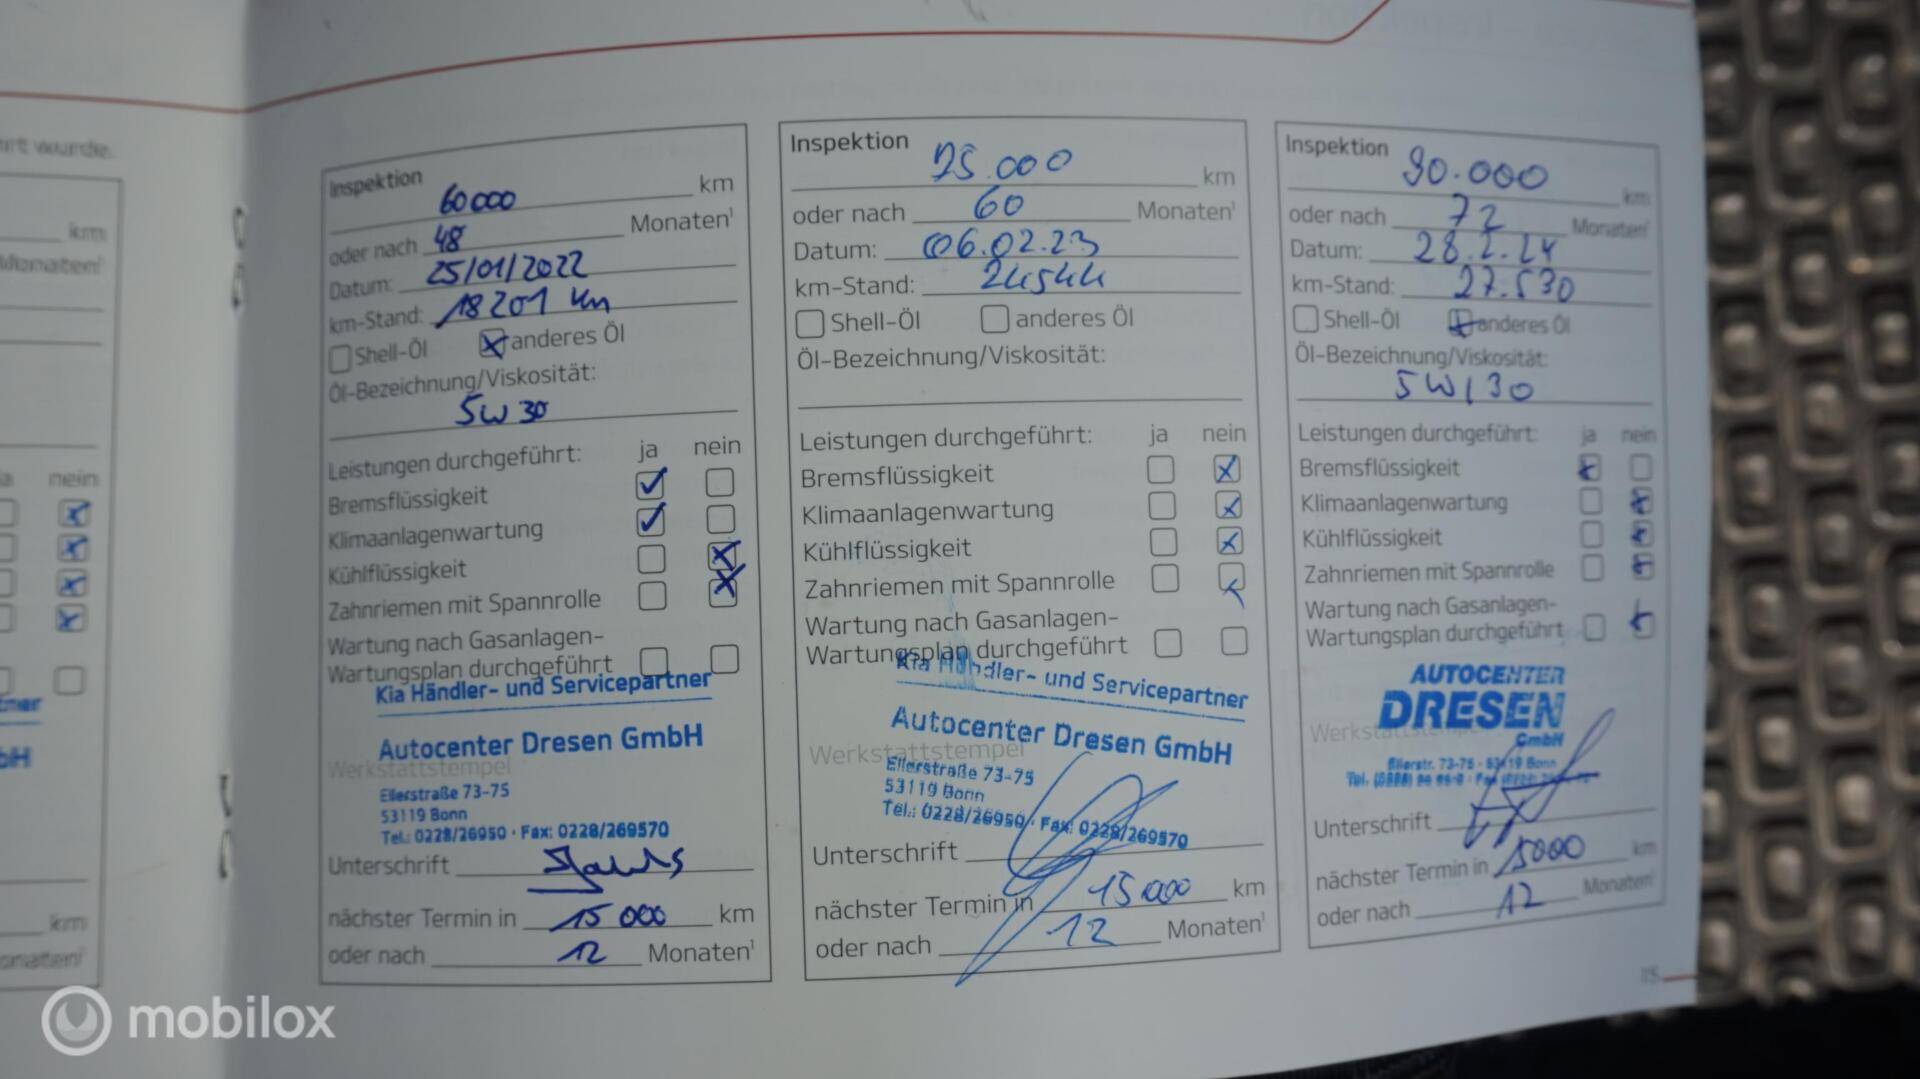 rt wurde.
km
Monaten¹
ja nein
tner
bH
km
onaten¹
Inspektion 60000 km
oder nach 48 Monaten¹
Datum: 25/01/2022
km-Stand: 18201 km
Shell-Öl anderes Öl
Öl-Bezeichnung/Viskosität:
5W30
Leistungen durchgeführt: ja nein
Bremsflüssigkeit
Klimaanlagenwartung
Kühlflüssigkeit
Zahnriemen mit Spannrolle
Wartung nach Gasanlagen-
Wartungsplan durchgeführt
Kia Händler- und Servicepartner
Autocenter Dresen GmbH
Werkstattstempel
Ellerstraße 73-75
53119 Bonn
Tel.: 0228/26950 · Fax: 0228/269570
Unterschrift
nächster Termin in 15 000 km
oder nach 12 Monaten¹
Inspektion 75.000 km
oder nach 60 Monaten¹
Datum: 06.02.23
km-Stand: 24544
Shell-Öl anderes Öl
Öl-Bezeichnung/Viskosität:
Leistungen durchgeführt: ja nein
Bremsflüssigkeit
Klimaanlagenwartung
Kühlflüssigkeit
Zahnriemen mit Spannrolle
Wartung nach Gasanlagen-
Wartungsplan durchgeführt
Kia Händler- und Servicepartner
Autocenter Dresen GmbH
Werkstattstempel
Ellerstraße 73-75
53119 Bonn
Tel.: 0228/26950 · Fax: 0228/269570
Unterschrift
nächster Termin in 15.000 km
oder nach 12 Monaten¹
Inspektion 90.000 km
oder nach 72 Monaten¹
Datum: 28.2.24
km-Stand: 27.530
Shell-Öl anderes Öl
Öl-Bezeichnung/Viskosität:
5W/30
Leistungen durchgeführt: ja nein
Bremsflüssigkeit
Klimaanlagenwartung
Kühlflüssigkeit
Zahnriemen mit Spannrolle
Wartung nach Gasanlagen-
Wartungsplan durchgeführt
AUTOCENTER
DRESEN
GmbH
Werkstattstempel
Ellerstr. 73-75 · 53119 Bonn
Unterschrift
nächster Termin in 15000 km
oder nach 12 Monaten¹
15
mobilox